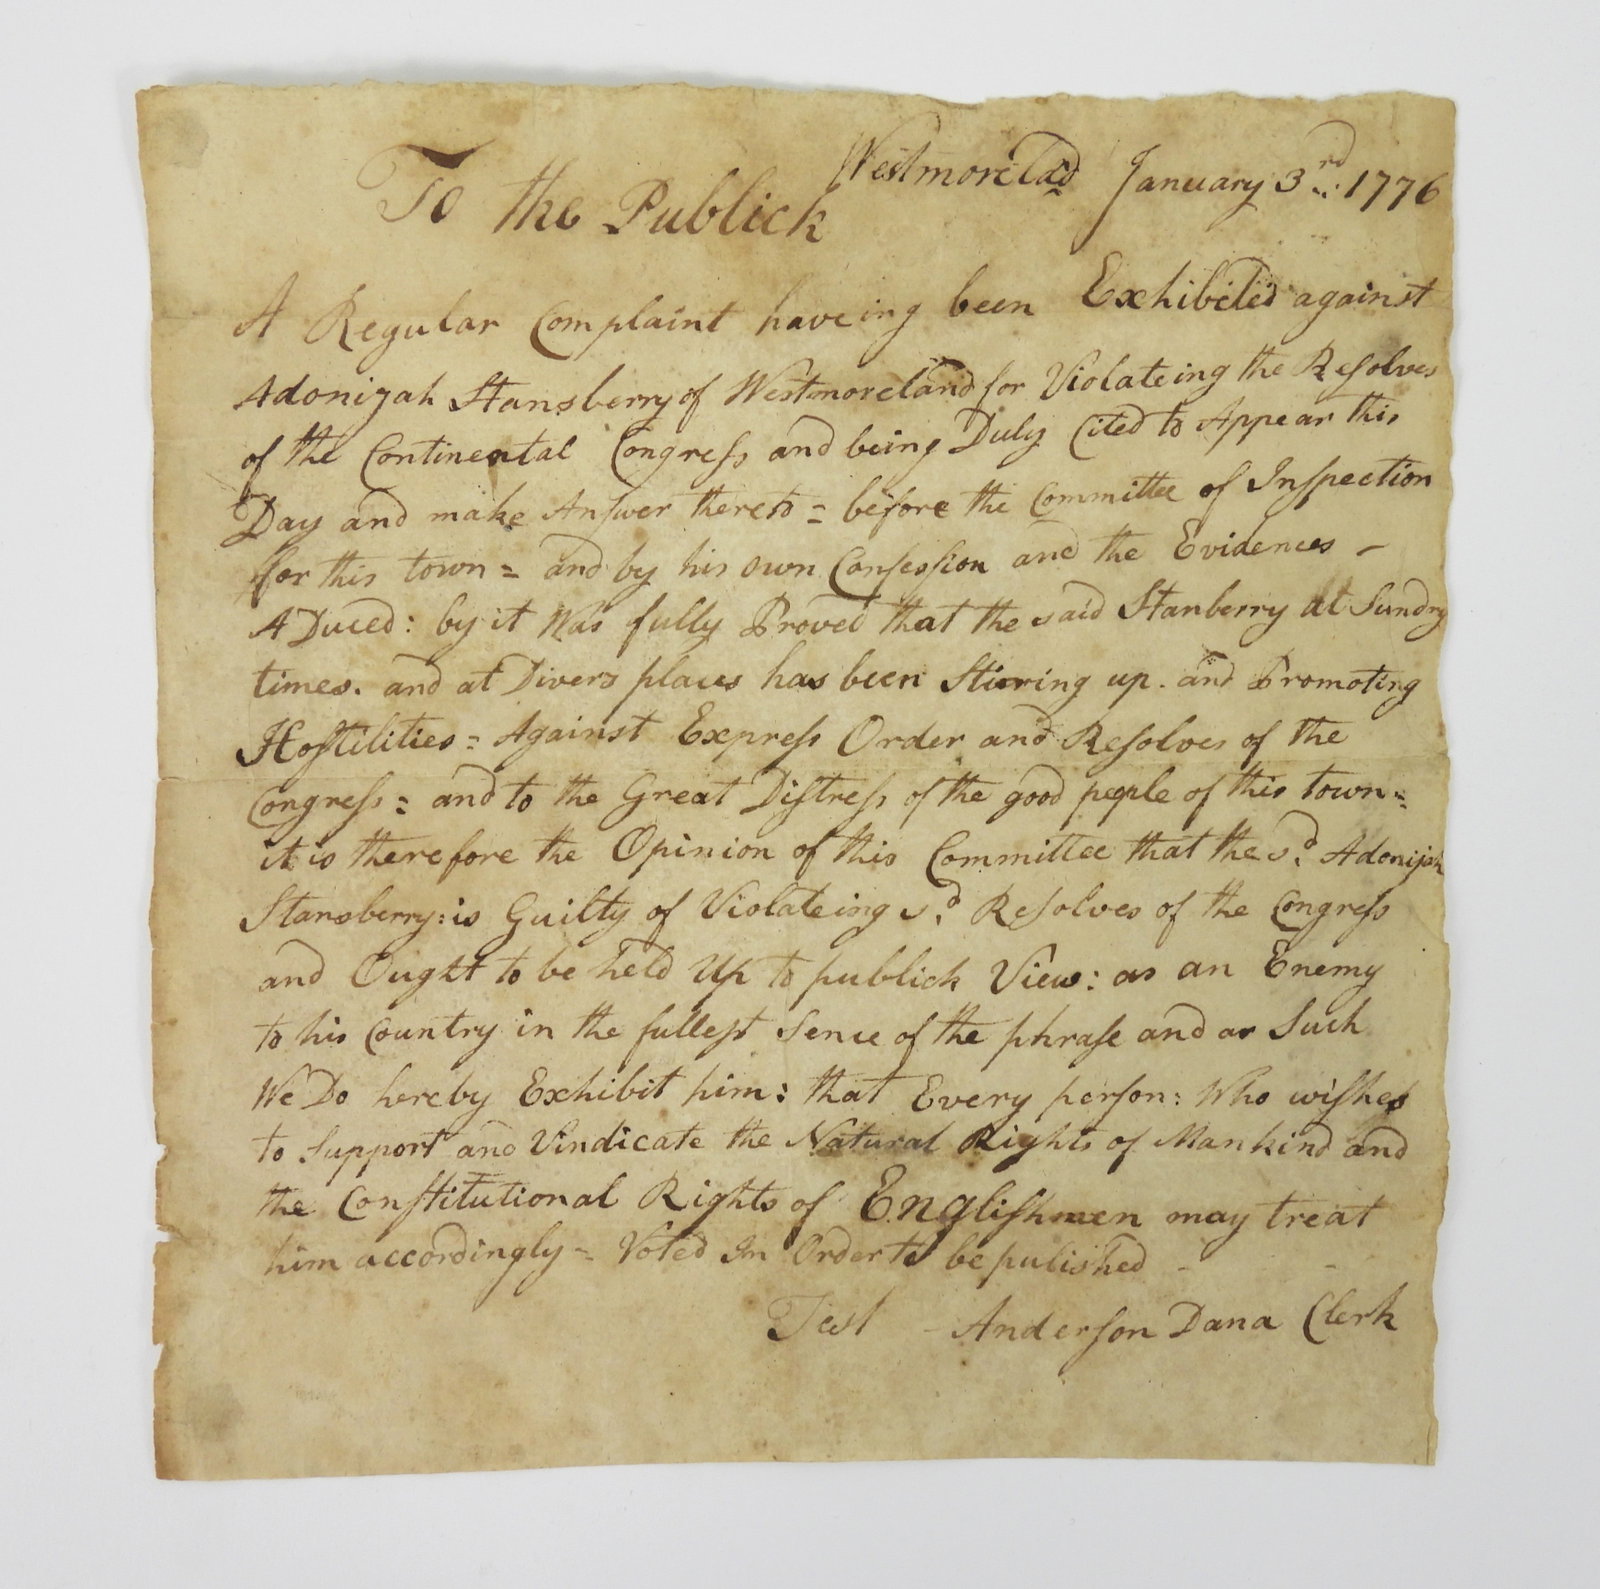 To the Publick Westmorela͞d January 3rd..: 1776
A Regular Complaint haveing been Exhibited against
Adonijah Stansberry of Westmoreland for Violateing the Resolves
of the Continental Congress and being Duly Cited to Appear this
Day and make Answer thereto = before the Committee of Inspection
for this town = and by his own Confession and the Evidences -
ADuced: by it Was fully Proved that the said Stanberry at Sundry
times. and at Divers places has been Stirring up. and Promoting
Hostilities = Against Express Order and Resolves of the
Congress = and to the Great Distress of the good people of this town =
it is therefore the Opinion of this Committee that the sd. Adonijah
Stansberry: is Guilty of Violateing sd. Resolves of the Congress
and Ought to be held Up to publick View: as an Enemy
to his Country in the fullest Sence of the phrase and as Such
We Do hereby Exhibit him: that Every person: Who wishes
to Support and Vindicate the Natural Rights of Mankind and
the Constitutional Rights of Englishmen may treat
him accordingly = Voted In Order to be pulished -
Test - Anderson Dana Clerk